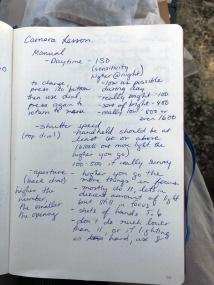 Camera Lesson
Manual
- Daytime - ISO
(sensitivity
higher @ night)
to change - low as possible
press iso button during day
then use dial, - really bright - 100
press again to - sort of bright - 400
return to - really low - 800 or
even 1600
- Shutter speed
(top dial) - handheld should be at
least 60 or above
(lets more light the
higher you go)
100-500 if really sunny
- aperture - higher you go the
(back dial) more things in focus
higher the - mostly do 11, lets in
number decent amount of light
the smaller but still in focus!
the opening - shots of hands 5.6
- don't do much lower
than 11, or if lighting
so hard, use 8